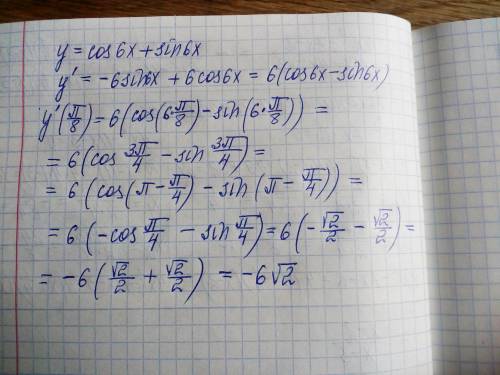 y = cos6x + sin6x
y' = -6sin6x + 6cos6x = 6(cos6x - sin6x)
y'(π/8) = 6(cos(6·π/8) - sin(6·π/8)) =
= 6(cos 3π/4 - sin 3π/4) =
= 6(cos(π - π/4) - sin(π - π/4)) =
= 6(-cos π/4 - sin π/4) = 6(-√2/2 - √2/2) =
= -6(√2/2 + √2/2) = -6√2